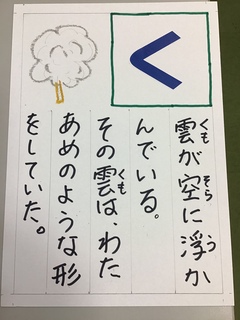 く
雲が空に浮か
んでいる。
その雲は、わた
あめのような形
をしていた。